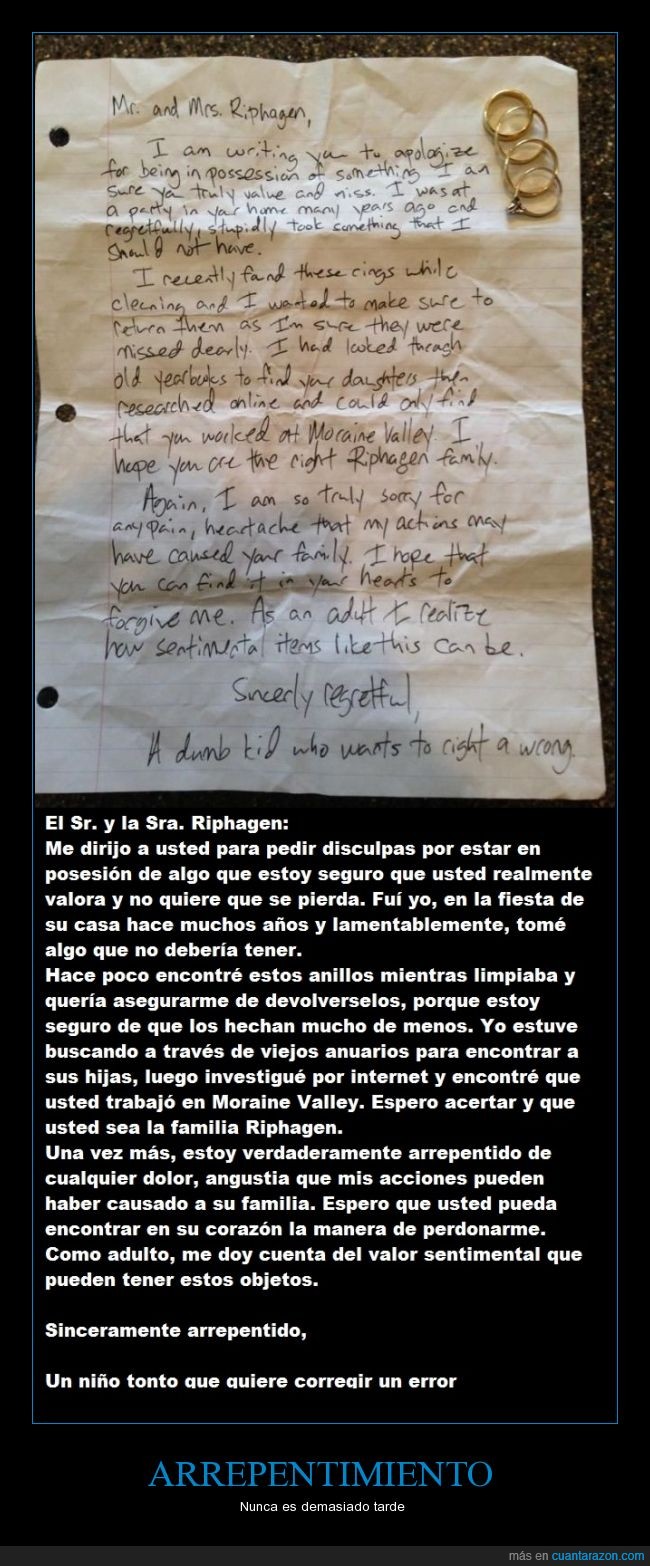 Mr. and Mrs. Riphagen,
I am writing you to apologize
for being in possession of something I am
sure you truly value and miss. I was at
a party in your home many years ago and
regretfully, stupidly took something that I
should not have.
I recently found these rings while
cleaning and I wanted to make sure to
return them as I'm sure they were
missed dearly. I had looked through
old yearbooks to find your daughters, then
researched online and could only find
that you worked at Moraine Valley. I
hope you are the right Riphagen family.
Again, I am so truly sorry for
any pain, heartache that my actions may
have caused your family. I hope that
you can find it in your hearts to
forgive me. As an adult I realize
how sentimental items like this can be.
Sincerly regretful,
A dumb kid who wants to right a wrong.
El Sr. y la Sra. Riphagen:
Me dirijo a usted para pedir disculpas por estar en
posesión de algo que estoy seguro que usted realmente
valora y no quiere que se pierda. Fuí yo, en la fiesta de
su casa hace muchos años y lamentablemente, tomé
algo que no debería tener.
Hace poco encontré estos anillos mientras limpiaba y
quería asegurarme de devolverselos, porque estoy
seguro de que los hechan mucho de menos. Yo estuve
buscando a través de viejos anuarios para encontrar a
sus hijas, luego investigué por internet y encontré que
usted trabajó en Moraine Valley. Espero acertar y que
usted sea la familia Riphagen.
Una vez más, estoy verdaderamente arrepentido de
cualquier dolor, angustia que mis acciones pueden
haber causado a su familia. Espero que usted pueda
encontrar en su corazón la manera de perdonarme.
Como adulto, me doy cuenta del valor sentimental que
pueden tener estos objetos.
Sinceramente arrepentido,
Un niño tonto que quiere corregir un error
ARREPENTIMIENTO
Nunca es demasiado tarde
más en cuantarazon.com